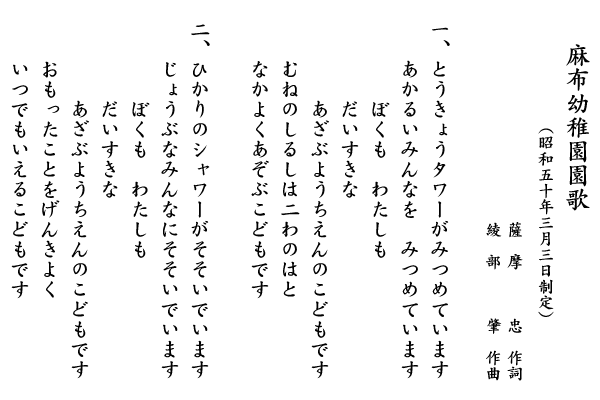 麻布幼稚園園歌
（昭和五十年三月三日制定）
薩摩　忠　作詞
綾部　肇　作曲
一、とうきょうタワーがみつめています
あかるいみんなを　みつめています
ぼくも　わたしも
だいすきな
あざぶようちえんのこどもです
むねのしるしは二わのはと
なかよくあそぶこどもです
二、ひかりのシャワーがそそいでいます
じょうぶなみんなにそそいでいます
ぼくも　わたしも
だいすきな
あざぶようちえんのこどもです
おもったことをげんきよく
いつでもいえるこどもです